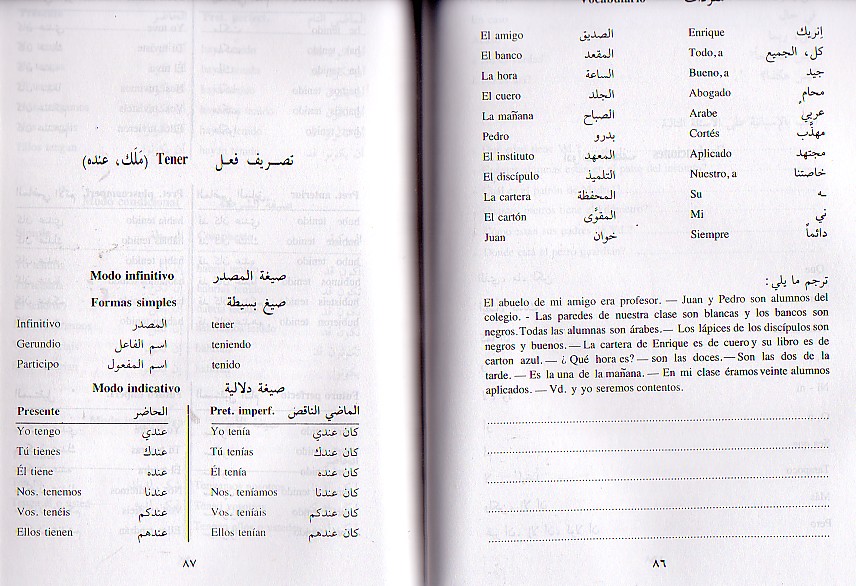 Vocabulario مفردات
El amigo الصديق Enrique إنريك
El banco المقعد Todo,a كل، الجميع
La hora الساعة Bueno,a جيد
El cuero الجلد Abogado محامٍ
La mañana الصباح Arabe عربي
Pedro بدرو Cortés مهذَّب
El instituto المعهد Aplicado مجتهد
El discípulo التلميذ Nuestro,a خاصتنا
La cartera المحفظة Su ـه
El cartón المقوَّى Mi ني
Juan خوان Siempre دائماً
ترجم ما يلي:
El abuelo de mi amigo era profesor. — Juan y Pedro son alumnos del
colegio. - Las paredes de nuestra clase son blancas y los bancos son
negros.Todas las alumnas son árabes.— Los lápices de los discípulos son
negros y buenos.— La cartera de Enrique es de cuero y su libro es de
carton azul.— ¿ Qué hora es? — son las doces.— Son las dos de la
tarde.— Es la una de la mañana.— En mi clase éramos veinte alumnos
aplicados. — Vd. y yo seremos contentos.
٨٦
تصريف فعل Tener (مَلَك، عنده)
Modo infinitivo صيغة المصدر
Formas simples صيغ بسيطة
Infinitivo المصدر tener
Gerundio اسم الفاعل teniendo
Participo اسم المفعول tenido
Modo indicativo صيغة دلالية
Presente الحاضر Pret. imperf. الماضي الناقص
Yo tengo عندي Yo tenía كان عندي
Tú tienes عندك Tú tenías كان عندك
Él tiene عنده Él tenía كان عنده
Nos. tenemos عندنا Nos. teníamos كان عندنا
Vos. tenéis عندكم Vos. teníais كان عندكم
Ellos tienen عندهم Ellos tenían كان عندهم
٨٧